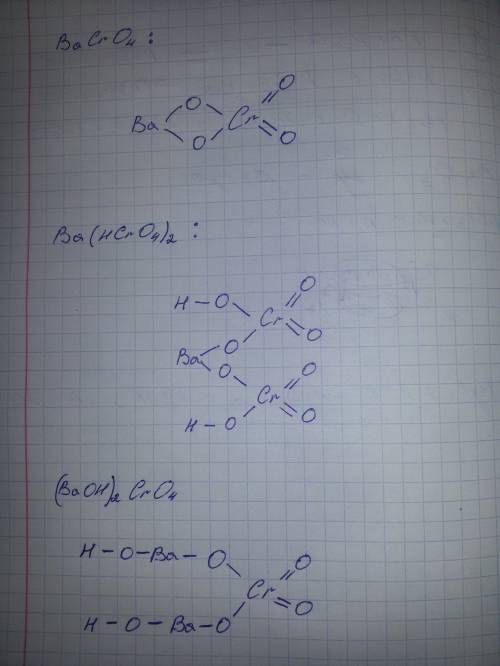 BaCrO4:
O O
Ba Cr
O O
Ba(HCrO4)2:
H-O O
Cr
O O
Ba
O O
Cr
H-O O
(BaOH)2CrO4
H-O-Ba-O O
Cr
H-O-Ba-O O